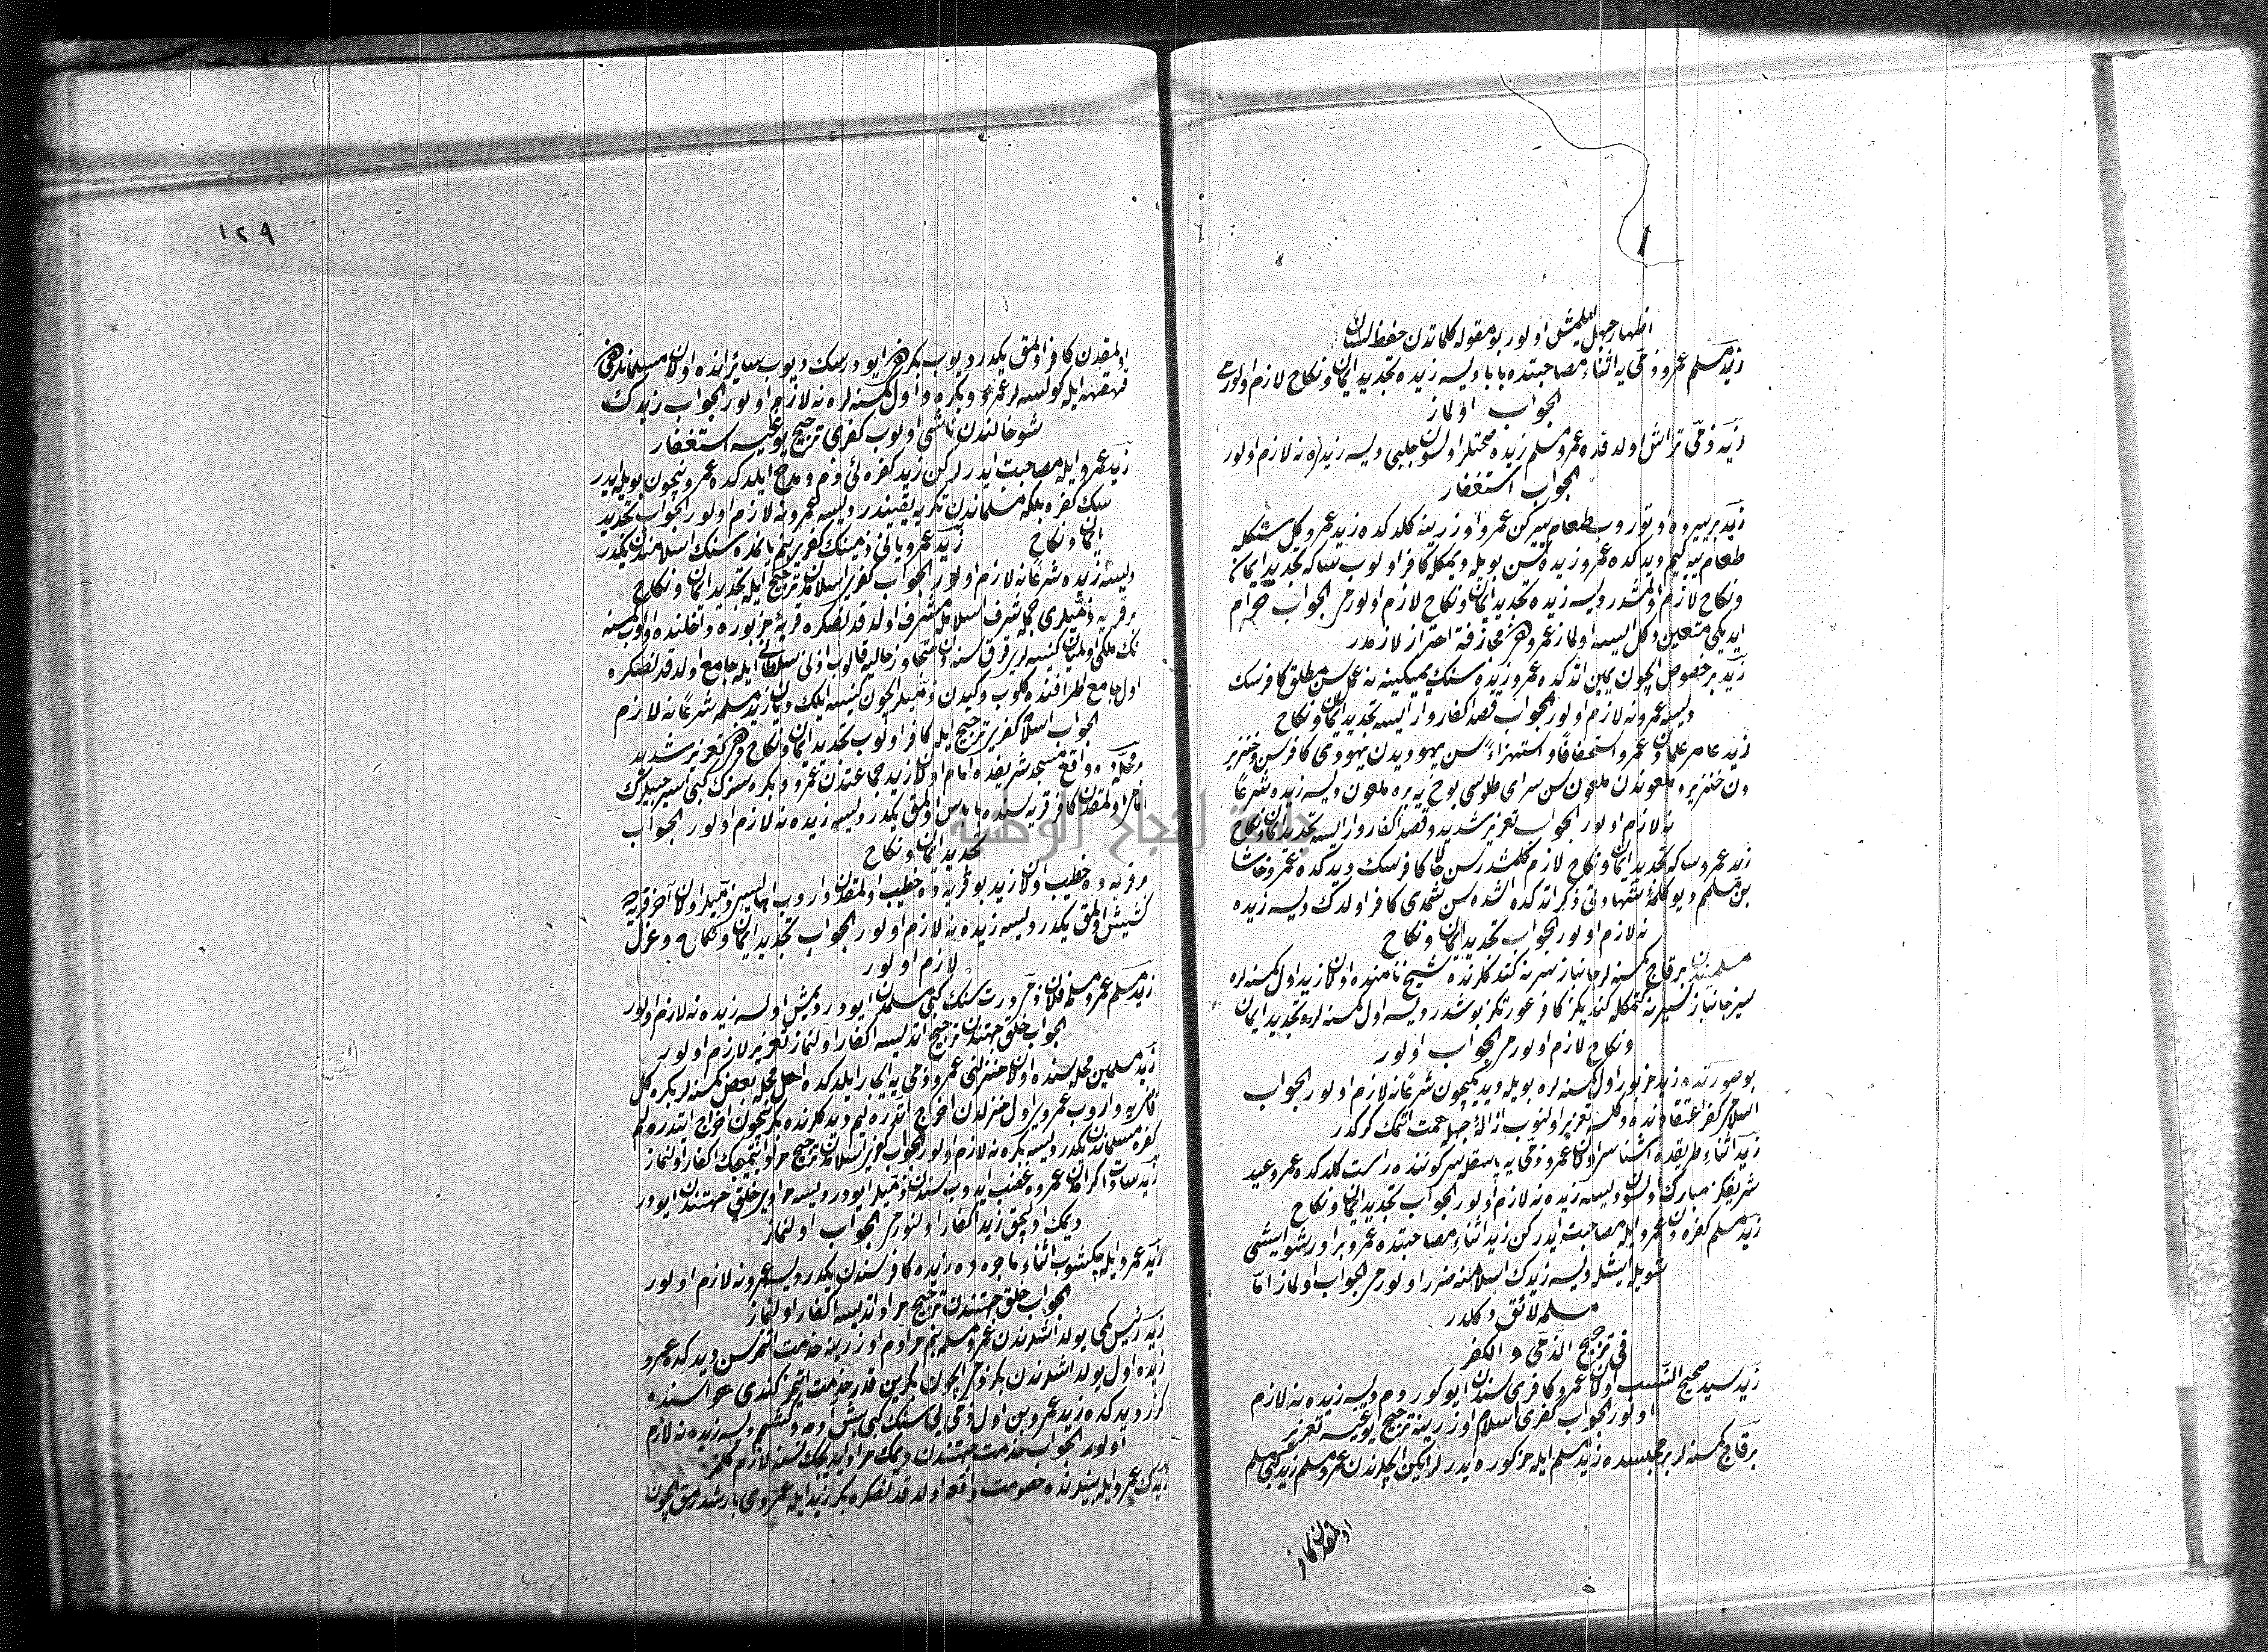 اظهار جهل ايلمش اولور بو مقوله كلماتدن حفظ لسان
زيد مسلم عمرو ذمى يه اثناء مصاحبتده بابا ديسه زيده تجديد ايمان ونكاح لازم اولورمى
الجواب اولماز
زيد ذمى تراش اولدقده عمرو مسلم زيده صحتلر اولسون چلبى ديسه زيده نه لازم اولور
الجواب استغفار
زيد بر يرده اوتوروب طعام يير كن عمرو اوزرينه كلدكده زيد عمرو كل شتكله
طعام ييه ليم ديدكده عمرو زيده سن بويله ديمكله كافر اولوب سكا تجديد ايمان
ونكاح لازم اولمشدر ديسه زيده تجديد ايمان ونكاح لازم اولورمى الجواب حرام
ايديكى متعين دكل ايسه اولماز عمرو دخى مجازفه دن احتراز لازمدر
زيد بر خصوص ايچون يمين اتدكده عمرو زيده سنك يمينكه نه عمل سن مطلق كافرسك
ديسه عمرو نه لازم اولور الجواب قصد اكفار وار ايسه تجديد ايمان ونكاح
زيد عامر علمادن عمرو استخفافا واستهزاء سن يهوديدن يهودى كافرسن وخنزير
دن خنزير وملعوندن ملعون سن ديسه زيده شرعا
نه لازم اولور الجواب تعزير شديد وقصد اكفار وار ايسه تجديد ايمان ونكاح
زيد عمرو سكا تجديد ايمان ونكاح لازم كلمشدر سن حالا كافرسك ديدكده عمرو حاشا
بن مسلمم ديو كلمه شهادتى ذكر اتدكده اشته سن شمدى كافر اولدك ديسه زيده
نه لازم اولور الجواب تجديد ايمان ونكاح
مسلميندن بر قاچ كمسنه لر جانباز سيرنه كتدكلرنده شيخ نامنده اولان زيد اول كمسنه لره
سيز جانباز سيرنه كتمكله كنديكز كافر عورتكز بوشدر ديسه اول كمسنه لره تجديد ايمان
ونكاح لازم اولورمى الجواب اولور
بو صورتده زيد مزبور اول كمسنه لره بويله ديديكيچون شرعا نه لازم اولور الجواب
اسلامى كفر اعتقادنده دكلسه تعزير اولنوب ازاله جهله همت اتمك كركدر
زيد اثناء طريقده اشناسى اولان عمرو ذمى يه پاسقليه كوننده راست كلدكده عمرو عيد
شريفكز مبارك اولسون ديسه زيده نه لازم اولور الجواب تجديد ايمان ونكاح
زيد مسلم كفره دن عمرو ايله مصاحبت ايدركن زيد اثناء مصاحبتده عمرو برادر شو ايشى
شويله ايشله ديسه زيدك اسلامنه ضرر اولورمى الجواب اولماز اما
مسلمه لائق دكلدر
فى ترجيح الذمى والكفر
زيد سيد صحيح النسب اولان عمرو كافرى سندن ايو كورورم ديسه زيده نه لازم
اولور الجواب كفرى اسلام اوزرينه ترجيح ايو دكلسه تعزير
بر قاچ كمسنه لر بر مجلسده زيد مسلم ايله مذكوره ايدرلر ايكن ايچلرندن عمرو مسلم زيد كبى مسلم
اولمقدن كافر
١٢٩
اولمقدن كافر اولمق يكدر ديوب بكر دخى ايو ديرسك ديوب سائر انده اولان مسلمانلر دخى
قهقهه ايله كولسه لر عمرو وبكره واول كمسنه لره نه لازم اولور الجواب زيدك
شو حالندن ناشى اولوب كفرى ترجيح يوغيسه استغفار
زيد عمرو ايله مصاحبت ايدرلركن زيد كفره يى ذم ومدح ايلدكده عمرو نيچون بويله ايدر
سك كفره بلكه مسلماندن تكريه يقيندر ديسه عمرو نه لازم اولور الجواب تجديد
ايمان ونكاح زيد عمرو يانى ذمينك كفرى بنم يانمده سنك اسلامندن يكدر
ديسه زيده شرعا نه لازم اولور الجواب كفرى اسلامه ترجيح ايله تجديد ايمان ونكاح
بر قريه ذميلرى جمله شرف اسلامله مشرف اولدقدنصكره قريه مزبوره داخلنده اولوب كمسنه
نك ملكى اولميان كنيسه لرى قرق سنه دن متجاوز خاليه قالوب اذن سلطانى ايله جامع اولدقدنصكره
اول جامع اطرافنده كلوب وكيدن ذميلر ايچون كنيسه ايلك ديان زيد مسلمه شرعا نه لازم
الجواب اسلامه كفرى ترجيح ايله كافر اولوب تجديد ايمان ونكاح دخى تعزير شديد
بر محله ده واقع مسجد شريفده امام اولان زيد جماعتندن عمرو وبكره سزك كبى
امام اولمقدن كافر قريه سنده پاپاس اولمق يكدر ديسه زيده نه لازم اولور الجواب
تجديد ايمان ونكاح
بر قريه ده خطيب اولان زيد بو قريه ده خطيب اولمقدن واروب اهاليسى ذميلر اولان آخر قريه ده
كشيش اولمق يكدر ديسه زيده نه لازم اولور الجواب تجديد ايمان ونكاح وعزل
لازم اولور
زيد مسلم عمرو مسلمه فلان ذمى سنك كبى مسلمدن ايودر ديمش اولسه زيده نه لازم اولور
الجواب خلق جهتندن ترجيح اتديسه اكفار اولنماز تعزير لازم اولور
زيد مسلمين محله سنده اولان منزلنى عمرو ذمى يه ايجار ايلدكده اهل محله بعض كمسنه لر بكره كل
قاضى يه واروب عمروى اول منزلدن اخراج اتدره ليم ديدكلرنده بكر نيچون اخراج اتدره لم
كفره مسلماندن يكدر ديسه بكره نه لازم اولور الجواب كفرى اسلامدن ترجيح مراد اتميجك اكفار اولنماز
زيد سادات كرامدن عمرو ه غضب ايدوب سندن ذميلر ايودر ديسه مرادى خلق جهتندن ايودر
ديمك اوليجق زيد اكفار اولنورمى الجواب اولنماز
زيد عمرو ايله چكشوب اثناء ماجراده زيده كافر سندن يكدر ديسه عمرو نه لازم اولور
الجواب خلق جهتندن ترجيح مراد اتديسه اكفار اولنماز
زيد رئيس كمى يولداشلرندن عمرو مسلمه بنم مرادم اوزرينه خدمت اتمزسن ديدكده عمرو
زيده اول يولداشلرندن بكر ذمى ايچون بكر بن قدر خدمت اتمز كندى هواسنده
كزر ديدكده زيد عمرو بن اول ذمى يى سنك كبى بش آدمه دكشمم ديسه زيده نه لازم
اولور الجواب خدمت جهتندن ديمك مراد ايديجك نسنه لازم كلمز
زيدك عمرو ايله بينلرنده خصومت واقعه اولدقدنصكره بكر زيد ايله عمروى بارشدرمق ايچون
جامعة النجاح الوطنية